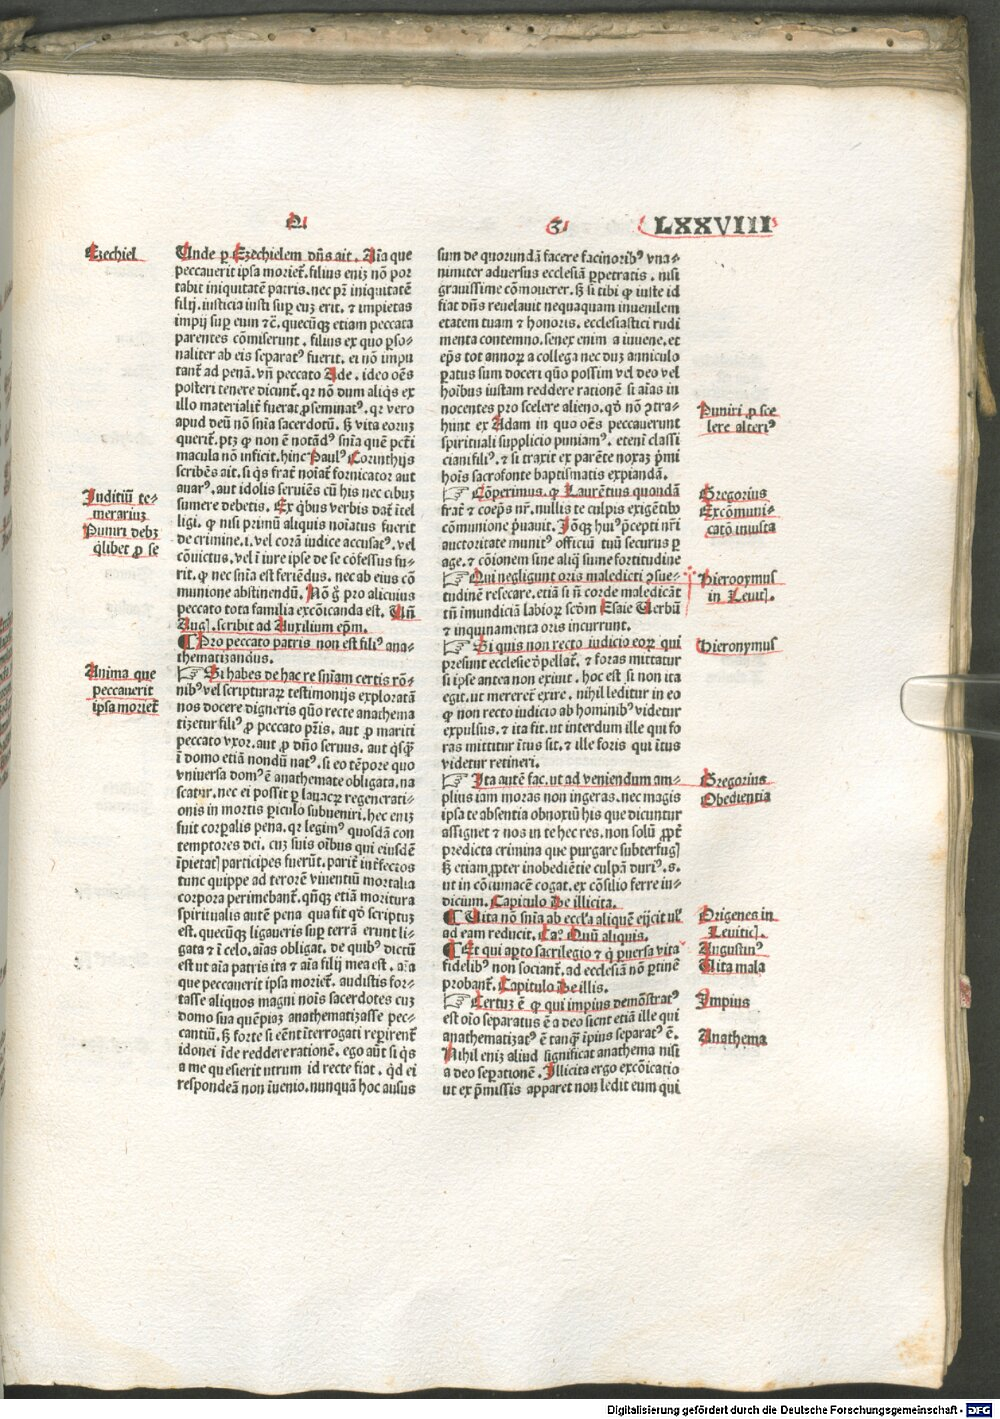 2 3 LXXVIII
Ezechiel
Unde ꝑ Ezechielem dn̄s ait. Aīa que
peccauerit ipsa moriet᷑. filius eniꝫ nō por
tabit iniquitatē patris. nec pr̄ iniquitatē
filij. iusticia iusti suꝑ euꝫ erit. ⁊ impietas
impij suꝑ eum ⁊c̄. quecūqꝫ etiam peccata
parentes cōmiserunt. filius ex quo ꝑso-
naliter ab eis separatꝰ fuerit. ei nō impu
tant᷑ ad penā. vn̄ peccato Ade. ideo oēs
posteri tenere dicunt᷑. qꝛ nō dum aliq̇s ex
illo materialit᷑ fuerat ꝓseminatꝰ. qꝛ vero
apud deū nō snīa sacerdotū. sꝫ vita eoruꝫ
querit᷑. ptꝫ ꝙ non ē notādꝰ snīa quē pctī
macula nō inficit. hinc Paulꝰ Corinthijs
scribēs ait. si q̇s frat᷑ noīat᷑ fornicator aut
auarꝰ. aut idolis seruiēs cū his nec cibuꝫ
sumere debetis. Ex q̇bus verbis dat᷑ ītel
ligi. ꝙ nisi primū aliquis noīatus fuerit
de crimine. i. vel corā iudice accusatꝰ. vel
cōuictus. vel ī iure ipse de se cōfessus fu-
rit. ꝙ nec snīa est feriēdus. nec ab eius cō
munione abstinendū. Nō g̊ pro alicuius
peccato tota familia excōicanda est. Vn̄
Augꝭ. scribit ad Auxilium ep̄m.
¶ Pro peccato patris non est filiꝰ ana-
thematizandus.
☞ Si habes de hac re snīam certis rō-
nibꝰ vel scripturaꝝ testimonijs exploratā
nos docere digneris quō recte anathema
tizetur filiꝰ ꝓ peccato pr̄is. aut ꝓ mariti
peccato vxor. aut ꝓ dn̄o seruus. aut q̇sꝙ̄
ī domo etiā nondū natꝰ. si eo tēpore quo
vniuersa domꝰ ē anathemate obligata. na
scatur. nec ei possit ꝑ lauacꝝ regenerati-
onis in mortis ꝑiculo subueniri. hec eniꝫ
fuit corꝑalis pena. qꝛ legimꝰ quosdā con
temptores dei. cuꝫ suis oībus qui eiusdē
īpietatꝭ participes fuerūt. parit᷑ int᷑fectos
tunc quippe ad terorē viuentiū mortalia
corpora perimebant᷑. qn̄qꝫ etiā moritura
spiritualis autē pena qua fit qd̓ scriptuꝫ
est. quecūqꝫ ligaueris suꝑ terrā erunt li-
gata ⁊ ī celo. aīas obligat. de quibꝰ dictū
est ut aīa patris ita ⁊ aīa filij mea est. aīa
que peccauerit ipsa moriet᷑. audistis for-
tasse aliquos magni noīs sacerdotes cuꝫ
domo sua quēpiaꝫ anathematizasse pec-
cantiū. sꝫ forte si eēnt īterrogati reꝑirent᷑
idonei īde reddere rationē. ego aūt si q̇s
a me quesierit utrum id recte fiat. qd̓ ei
respondeā non īuenio. nunquā hoc ausus
Juditiū te-
merariuꝫ
Puniri debꝫ
q̇libet ꝓ se
Anima que
peccauerit
ipsa moriet᷑
sum de quorundā facere facinoribꝰ vna-
nimiter aduersus ecclesiā ꝑpetratis. nisi
grauissime cōmouerer. sꝫ si tibi ꝙ iuste id
fiat dn̄s reuelauit nequaquam iuuenilem
etatem tuam ⁊ honoris. ecclesiastici rudi
menta contemno. senex enim a iuuene. et
ep̄s tot annoꝝ a collega nec duꝫ anniculo
ꝑatus sum doceri quō possim vel deo vel
hoībus iustam reddere rationē si aīas in
nocentes pro scelere alieno. qd̓ nō ꝯtra-
hunt ex Adam in quo oēs peccauerunt
spirituali supplicio puniamꝰ. etenī classi
ciani filiꝰ. ⁊ si traxit ex parēte noxaꝫ pͥmi
hoīs sacrofonte baptismatis expiandā.
☞ Cōperimus. ꝙ Laurētius quondā
frat᷑ ⁊ coep̄s nr̄. nullis te culpis exigētibꝰ
cōmunione pͥuauit. Jōqꝫ huiꝰ p̄cepti nr̄i
auctoritate munitꝰ officiū tuū securus ꝑ
age. ⁊ cōionem sine aliq̄ sume fortitudine
☞ Qui negligunt oris maledicti ꝯsue-
tudinē resecare. etiā si n̄ corde maledicāt
tn̄ imundiciā labioꝝ scd̓m Esaie Verbū
⁊ inquinamenta oris incurrunt.
☞ Si quis non recto iudicio eoꝝ qui
presunt ecclesie ꝓpellat᷑. ⁊ foras mittatur
si ipse antea non exiuit. hoc est si non ita
egit. ut mereret᷑ exire. nihil leditur in eo
ꝙ non recto iudicio ab hominibꝰ videtur
expulsus. ⁊ ita fit. ut interdum ille qui fo
ras mittitur ītus sit. ⁊ ille foris qui ītus
videtur retineri.
☞ Ita autē fac. ut ad veniendum am-
plius iam moras non ingeras. nec magis
ipsa te absentia obnoxiū his que dicuntur
assignet ⁊ nos in te hec res. non solū ꝓpt᷑
predicta crimina que purgare subterfugꝭ
sꝫ etiam ꝓpter inobediētie culpā duriꝰ. s.
ut in cōtumacē cogat. ex cōsilio ferre iu-
dicium. Capitulo De illicita.
¶ Uita nō snīa ab ecclīa aliquē eijcit ul̓
ad eam reducit. Ca. Quū aliquis.
¶ Et qui aꝑto sacrilegio ⁊ q̇ ꝑuersa vita
fidelibꝰ non sociant᷑. ad ecclesiā nō ꝑtinē
probant᷑. Capitulo De illis.
☞ Certuꝫ ē ꝙ qui impius demōstrat᷑
est oīo separatus ē a deo sicut etiā ille qui
anathematizatꝰ ē tanꝙ̄ īpius separatꝰ ē.
Nihil eniꝫ aliud significat anathema nisi
a deo seꝑationē. Illicita ergo excōicatio
ut ex p̄missis apparet non ledit eum qui
Puniri ꝓ sce
lere alteriꝰ
Gregorius
Excōmuni-
catō iniusta
Hierooymus
in Leuitꝭ.
Hieronymus
Gregorius
Obedientia
Origenes in
Leuiticꝭ.
Augustinꝰ
Uita mala
Impius
Anathema
Digitalisierung gefördert durch die Deutsche Forschungsgemeinschaft - DFG